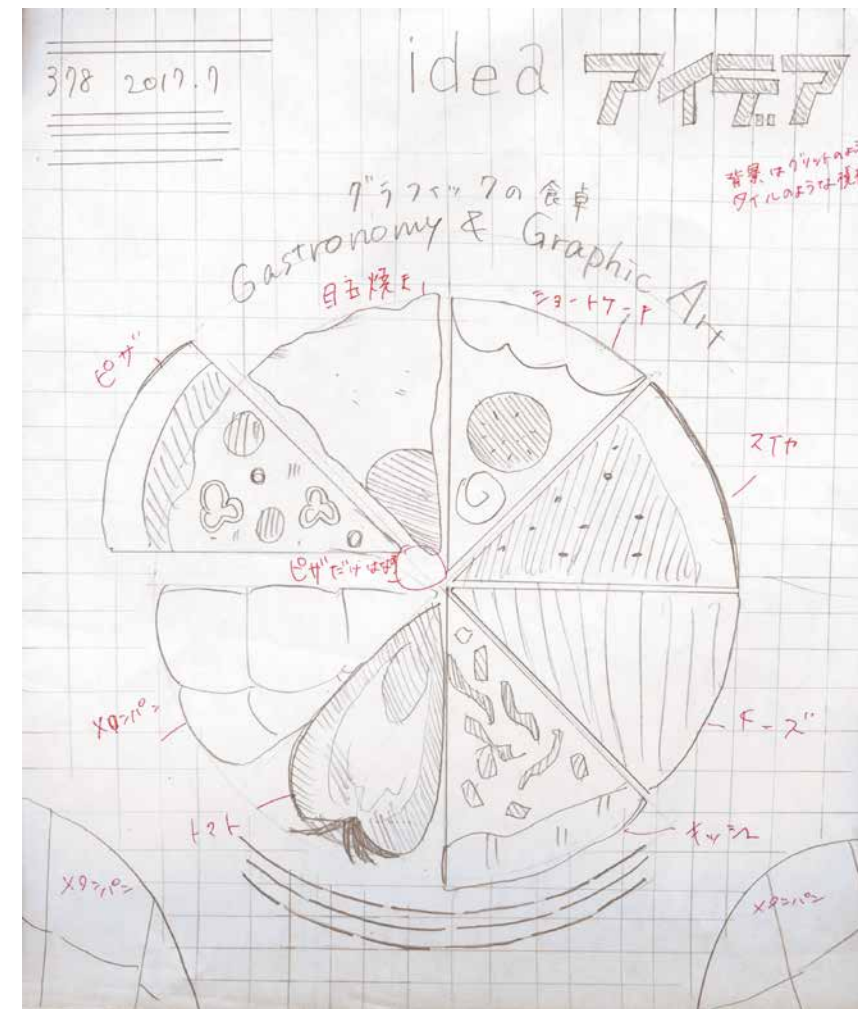 378 2017.7
idea アイデア
背景はグリットのよ
タイルのような
グラフィックの食卓
Gastronomy & Graphic Art
目玉焼き
ショートケーキ
ピザ
スイカ
ピザだけはな
メロンパン
チーズ
トマト
キッシュ
メロンパン
メロンパン